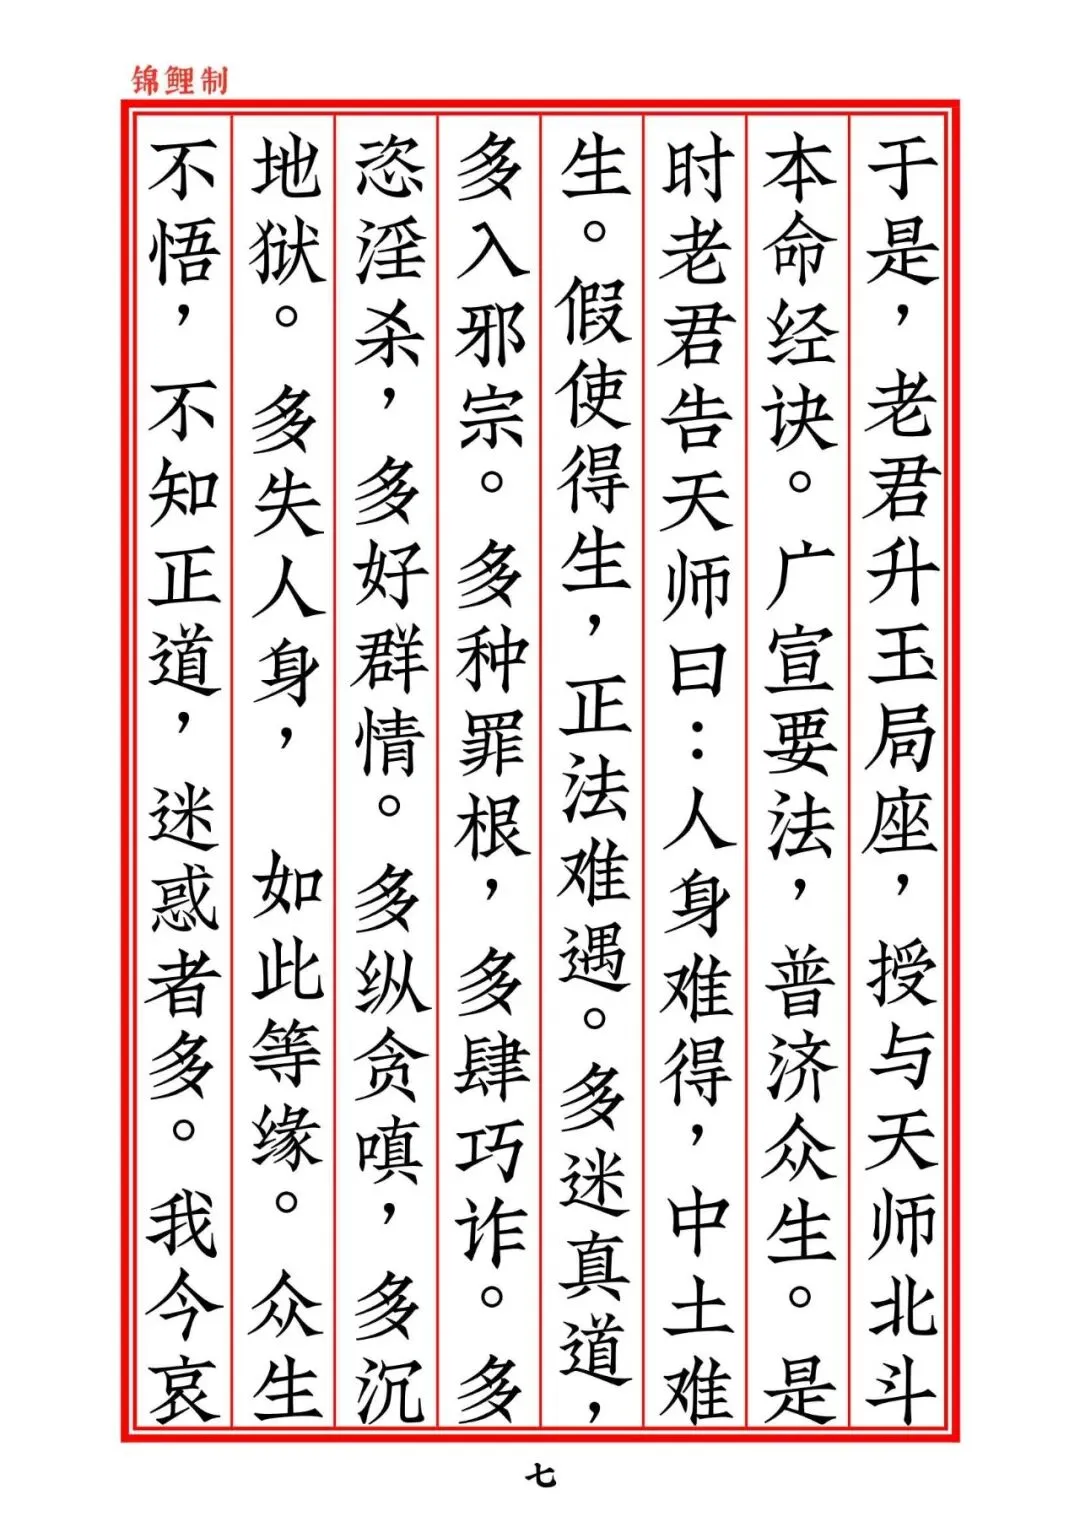 锦鲤制
于是，老君升玉局座，授与天师北斗
本命经诀。广宣要法，普济众生。是
时老君告天师曰：人身难得，中土难
生。假使得生，正法难遇。多迷真道，
多入邪宗。多种罪根，多肆巧诈。多
恣淫杀，多好群情。多纵贪嗔，多沉
地狱。多失人身，如此等缘。众生
不悟，不知正道，迷惑者多。我今哀
七